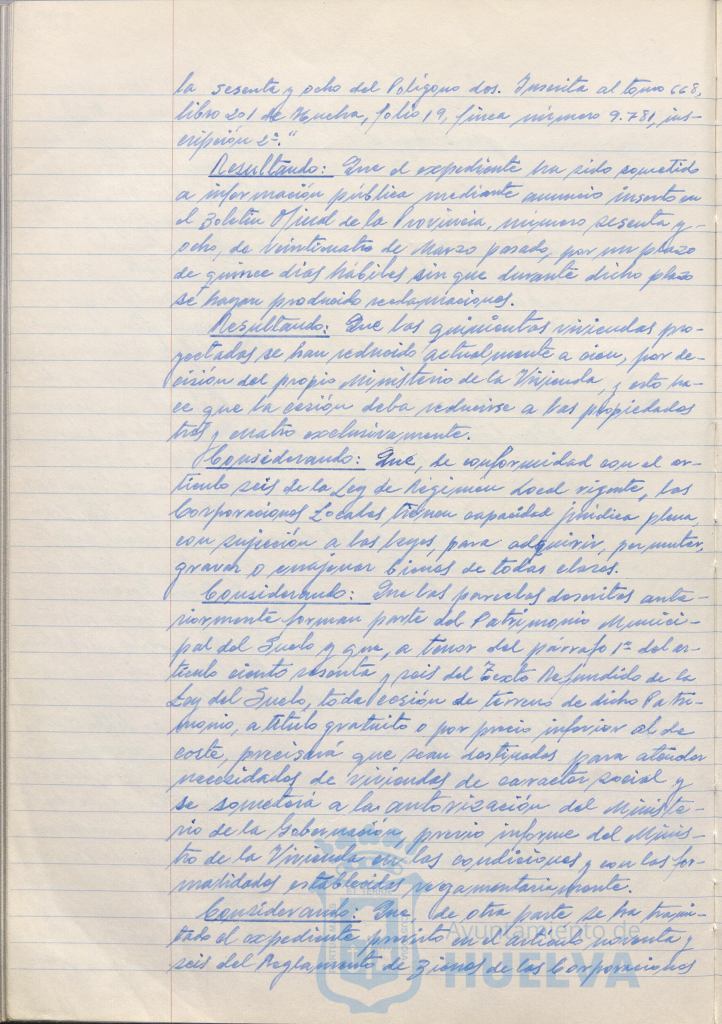 la sesenta y ocho del Polígono dos. Inscrita al tomo 668,
libro 201 de Huelva, folio 19, finca número 9.781, ins-
cripción 2ª."
Resultando: Que el expediente ha sido sometido
a información pública mediante anuncio inserto en
el Boletín Oficial de la Provincia, número sesenta y
ocho, de veinticuatro de Marzo pasado, por un plazo
de quince días hábiles sin que durante dicho plazo
se hayan producido reclamaciones.
Resultando: Que las quinientas viviendas pro-
yectadas se han reducido actualmente a cien, por de-
cisión del propio Ministerio de la Vivienda, y esto ha-
ce que la cesión deba reducirse a las propiedades
tres y cuatro exclusivamente.
Considerando: Que, de conformidad con el ar-
tículo seis de la Ley de Régimen Local vigente, las
Corporaciones Locales tienen capacidad jurídica plena,
con sujeción a las leyes, para adquirir, permutar,
gravar o enajenar bienes de todas clases.
Considerando: Que las parcelas descritas ante-
riormente forman parte del Patrimonio Munici-
pal del Suelo y que, a tenor del párrafo 1º del ar-
tículo ciento sesenta y seis del Texto Refundido de la
Ley del Suelo, toda cesión de terreno de dicho Patri-
monio, a título gratuito o por precio inferior al de
coste, precisará que sean destinados para atender
necesidades de viviendas de caracter social y
se someterá a la autorización del Ministe-
rio de la Gobernación, previo informe del Minis-
tro de la Vivienda en las condiciones y con las for-
malidades establecidas reglamentariamente.
Considerando: Que, de otra parte se ha trami-
tado el expediente previsto en el artículo noventa y
seis del Reglamento de Bienes de las Corporaciones
Ayuntamiento de
HUELVA